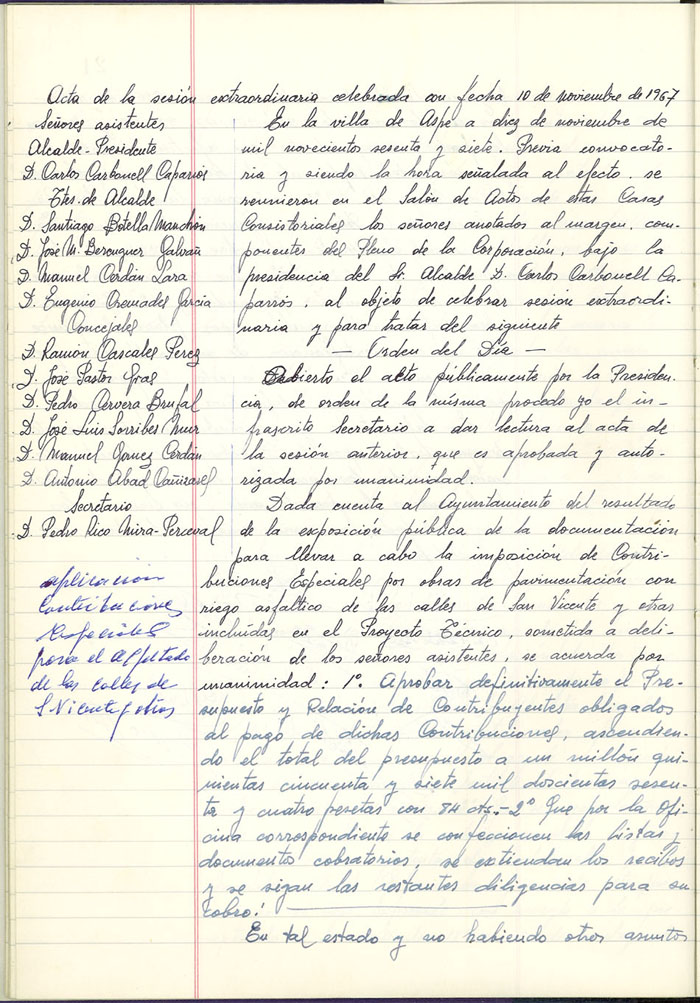 Acta de la sesión extraordinaria celebrada con fecha 10 de noviembre de 1967
Señores asistentes
Alcalde-Presidente
D. Carlos Carbonell Caparrós
Ttes. de Alcalde
D. Santiago Botella Manchón
D. José M. Berenguer Galvañ
D. Manuel Cerdán Lara
D. Eugenio Cremades García
Concejales
D. Ramón Cascales Perez
D. José Pastor Gras
D. Pedro Cervera Brufal
D. José Luis Torribes Mur
D. Manuel Gomez Cerdán
D. Antonio Abad Cañizares
Secretario
D. Pedro Rico Mira-Perceval
aplicación
Contribuciones
Especiales
para el asfaltado
de las calles de
S. Vicente y otras
En la villa de Aspe a diez de noviembre de
mil novecientos sesenta y siete. Previa convocato-
ria y siendo la hora señalada al efecto, se
reunieron en el Salón de Actos de estas Casas
Consistoriales los señores anotados al margen, com-
ponentes del Pleno de la Corporación, bajo la
presidencia del Sr. Alcalde D. Carlos Carbonell Ca-
parrós, al objeto de celebrar sesión extraordi-
naria y para tratar del siguiente
— Orden del Día —
Abierto el acto públicamente por la Presiden-
cia, de orden de la misma procedo yo el in-
frascrito Secretario a dar lectura al acta de
la sesión anterior, que es aprobada y auto-
rizada por unanimidad.
Dada cuenta al Ayuntamiento del resultado
de la exposición pública de la documentación
para llevar a cabo la imposición de Contri-
buciones Especiales por obras de pavimentación con
riego asfáltico de las calles de San Vicente y otras
incluídas en el Proyecto Técnico, sometida a deli-
beración de los señores asistentes, se acuerda por
unanimidad: 1º. Aprobar definitivamente el Pre-
supuesto y Relación de Contribuyentes obligados
al pago de dichas Contribuciones, ascendien-
do el total del presupuesto a un millón qui-
nientas cincuenta y siete mil doscientas sesen-
ta y cuatro pesetas con 84 cts.- 2º Que por la Ofi-
cina correspondiente se confeccionen las listas y
documentos cobratorios, se extiendan los recibos
y se sigan las restantes diligencias para su
cobro.
En tal estado y no habiendo otros asuntos